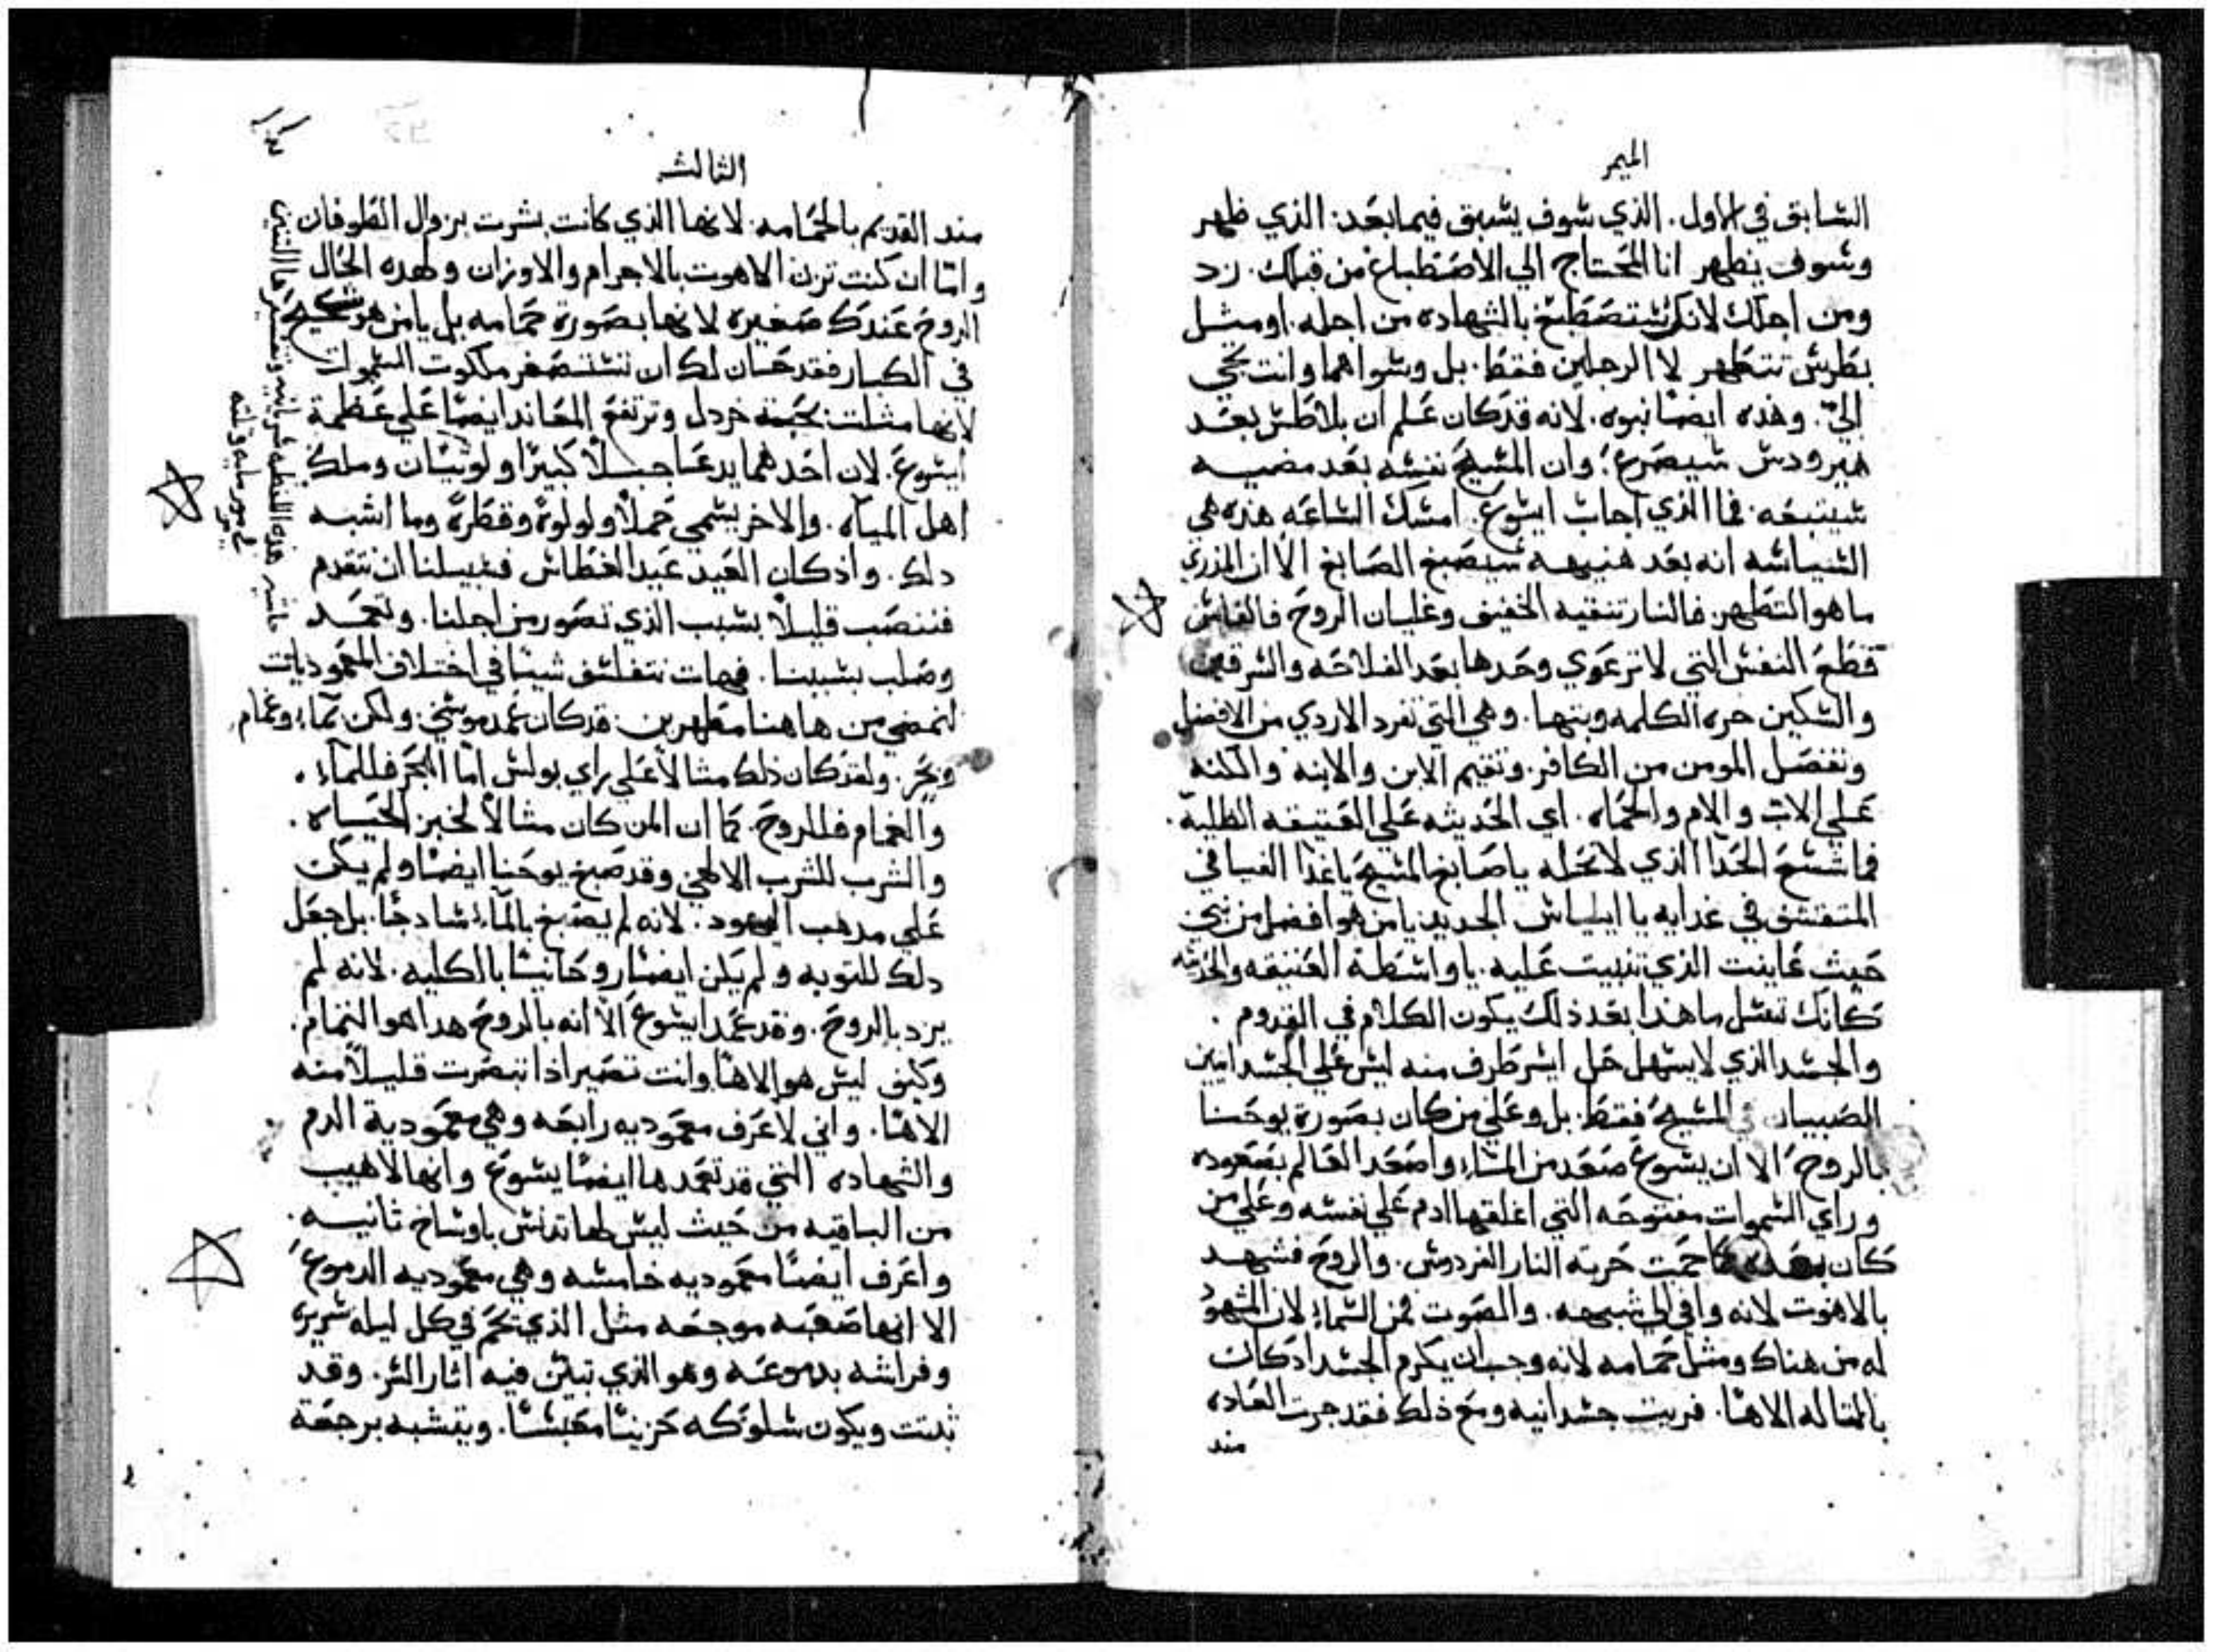 الميمر
السابق في الاول. الذي سوف يسبق فيما بعد. الذي ظهر
وسوف يظهر انا المحتاج الي الاصطباغ من قبلك. زد
ومن اجلك لانك ستصطبغ بالشهاده من اجله. او مثل
بطرس تتطهر لا الرجلين فقط. بل وسواهما وانت تجي
الي. وهذه ايضا نبوه. لانه قد كان علم ان بلاطس بعد
هيرودس سيصرع. وان المسيح نفسه بعد مضيه
سيتبعه. فما الذي اجاب ايسوع. امسك الساعه هذه هي
السياسه انه بعد هنيهه سيصبغ الصابغ الا ان المذري
ما هو التطهير. فالنار تنقيه الخفيف وغليان الروح فالفاس
قطع النفس التي لا ترعوي وحدها بعد الفلاحه والسرقين
والسكين حره الكلمه وبتها. وهي التي تفرد الاردي من الافضل
وتفصل المومن من الكافر. وتقيم الابن والابنه والكنه
علي الاب والام والحماه. اي الحديثه علي العتيقه الظليه.
فما شسع الحدا الذي لا تحله يا صابغ المسيح يا غذا الفيافي
المتقشف في غدايه يا ايلياس الجديد يا من هو افضل من نبي
حيث عاينت الذي تنبيت عليه. يا واسطة العتيقه والحديثه
كانك تسل ما هذا بعد ذلك يكون الكلام في القدوم.
والجسد الذي لا يسهل حل ايسر طرف منه ليس علي الجسدانيين
الصبيان في المسيح فقط. بل وعلي من كان بصورة يوحنا
بالروح الا ان يسوع صعد من الماء واصعد العالم بصعوده
وراي السموات مفتوحه التي اغلقها ادم علي نفسه وعلي من
كان بعده كما حميت حربة النار الفردوس. والروح فشهد
بالاهوت لانه وافي الي شبيهه. والصوت فمن السماء لان المشهود
له من هناك ومثل حمامه لانه وجب ان يكرم الجسد اد كان
بالمتاله الاهنا. فريت جسدانيه ومع ذلك فقد جرت العاده
مند
الثالث
مند القديم بالحمامه لانها الذي كانت بشرت بزوال الطوفان
واما ان كنت تزن الاهوت بالاجرام والاوزان ولهده الحال
الروح عندك صغيره لانها بصورة حمامه بل يا من هو شحيح
في الكبار فقد حان لك ان تستصغر ملكوت السموات
لانها مثلت بحبة خردل وترتفع المعاند ايضا علي عظمة
ايسوع. لان احدهما يدعا جبلا كبيرا ولويتان وملك
اهل المياه. والاخر يسمي حملا ولولوة وقطرة وما اشبه
دلك. واذ كان العيد عيد الغطاس فسبيلنا ان نتقدم
فننصب قليلا بسبب الذي تصور من اجلنا. وتعمد
وصلب بسببنا. فهات نتفلسف شيئا في اختلاف المعموديات
لنمضي من هاهنا مطهرين. قد كان عمد موسي ولكن بماء وغمام
وبحر. ولقد كان ذلك مثالا علي راي بولس اما البحر فللماء.
والغمام فللروح. كما ان المن كان مثالا لخبز الحياه.
والشرب للشرب الالهي وقد صبغ يوحنا ايضا ولم يكن
علي مدهب اليهود. لانه لم يصبغ بالماء سادجا. بل جعل
دلك للتوبه ولم يكن ايضا روحانيا بالكليه. لانه لم
يزد بالروح. وقد عمد ايسوع الا انه بالروح هدا هو التمام.
وكيف ليس هو الاهنا وانت تصير اذا تبصرت قليلا منه
الاهنا. واني لاعرف معموديه رابعه وهي معمودية الدم
والشهاده التي قد تعمدها ايضا يسوع وانها لاهيب
من الباقيه من حيث ليس لها تدانس باوساخ ثانيه.
واعرف ايضا معموديه خامسه وهي معموديه الدموع
الا انها صعبه موجعه مثل الذي يحم في كل ليله سريره
وفراشه بدموعه وهو الذي تبين فيه اثار الشر. وقد
نتنت ويكون سلوكه حزينا معبسا. ويتشبه برجعة